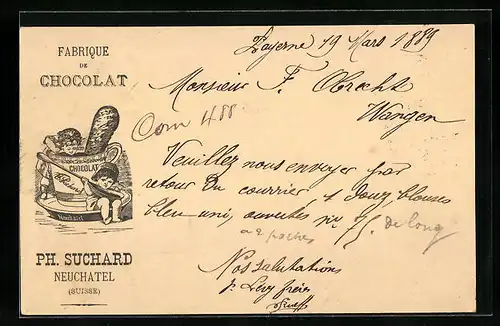 FABRIQUE
DE
CHOCOLAT
CHOCOLAT
PH. SUCHARD
NEUCHATEL
(SUISSE)
Payerne 19 Mars 1889
Monsieur F. Obrecht
Wangen
Com 488
Veuillez nous envoyer par
retour du courrier, 1 Douz blouses
bleu uni, ouvertes de long
a 2 poches
Nos salutations
p. Levy frères